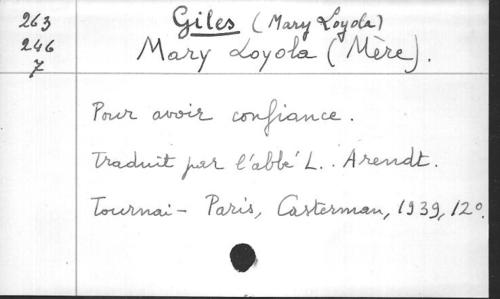 263 Giles (Mary Loyola)
246 Mary Loyola (Mère).
7
Pour avoir confiance.
Traduit par l'abbé L. Arendt.
Tournai - Paris, Casterman, 1939, 12°.